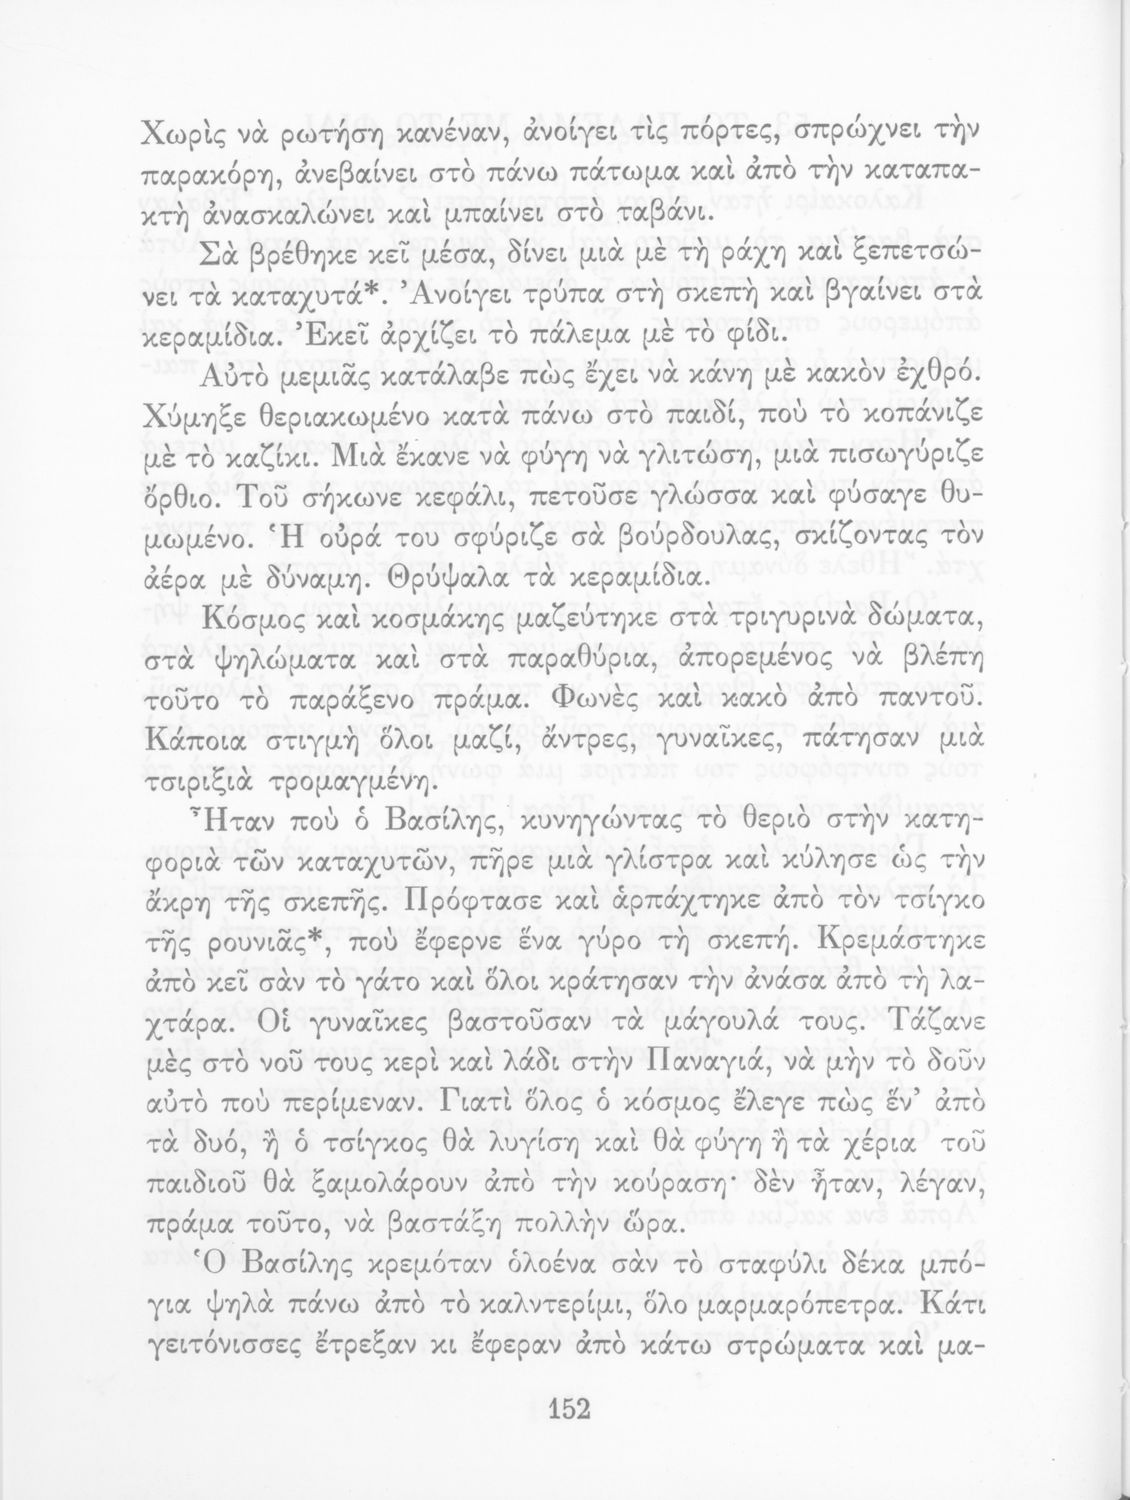 Χωρὶς νὰ ρωτήση κανέναν, ἀνοίγει τὶς πόρτες, σπρώχνει τὴν
παρακόρη, ἀνεβαίνει στὸ πάνω πάτωμα καὶ ἀπὸ τὴν καταπα-
κτὴ ἀνασκαλώνει καὶ μπαίνει στὸ ταβάνι.
Σὰ βρέθηκε κεῖ μέσα, δίνει μιὰ μὲ τὴ ράχη καὶ ξεπετσώ-
νει τὰ καταχυτά*. Ἀνοίγει τρύπα στὴ σκεπὴ καὶ βγαίνει στὰ
κεραμίδια. Ἐκεῖ ἀρχίζει τὸ πάλεμα μὲ τὸ φίδι.
Αὐτὸ μεμιᾶς κατάλαβε πὼς ἔχει νὰ κάνη μὲ κακὸν ἐχθρό.
Χύμηξε θεριακωμένο κατὰ πάνω στὸ παιδί, ποὺ τὸ κοπάνιζε
μὲ τὸ καζίκι. Μιὰ ἔκανε νὰ φύγη νὰ γλιτώση, μιὰ πισωγύριζε
ὄρθιο. Τοῦ σήκωνε κεφάλι, πετοῦσε γλώσσα καὶ φύσαγε θυ-
μωμένο. Ἡ οὐρά του σφύριζε σὰ βούρδουλας, σκίζοντας τὸν
ἀέρα μὲ δύναμη. Θρύψαλα τὰ κεραμίδια.
Κόσμος καὶ κοσμάκης μαζεύτηκε στὰ τριγυρινὰ δώματα,
στὰ ψηλώματα καὶ στὰ παραθύρια, ἀπορεμένος νὰ βλέπη
τοῦτο τὸ παράξενο πράμα. Φωνὲς καὶ κακὸ ἀπὸ παντοῦ.
Κάποια στιγμὴ ὅλοι μαζί, ἄντρες, γυναῖκες, πάτησαν μιὰ
τσιριξιὰ τρομαγμένη.
Ἦταν ποὺ ὁ Βασίλης, κυνηγώντας τὸ θεριὸ στὴν κατη-
φοριὰ τῶν καταχυτῶν, πῆρε μιὰ γλίστρα καὶ κύλησε ὡς τὴν
ἄκρη τῆς σκεπῆς. Πρόφτασε καὶ ἁρπάχτηκε ἀπὸ τὸν τσίγκο
τῆς ρουνιᾶς*, ποὺ ἔφερνε ἕνα γύρο τὴ σκεπή. Κρεμάστηκε
ἀπὸ κεῖ σὰν τὸ γάτο καὶ ὅλοι κράτησαν τὴν ἀνάσα ἀπὸ τὴ λα-
χτάρα. Οἱ γυναῖκες βαστοῦσαν τὰ μάγουλά τους. Τάζανε
μὲς στὸ νοῦ τους κερὶ καὶ λάδι στὴν Παναγιά, νὰ μὴν τὸ δοῦν
αὐτὸ ποὺ περίμεναν. Γιατὶ ὅλος ὁ κόσμος ἔλεγε πὼς ἕν' ἀπὸ
τὰ δυό, ἢ ὁ τσίγκος θὰ λυγίση καὶ θὰ φύγη ἢ τὰ χέρια τοῦ
παιδιοῦ θὰ ξαμολάρουν ἀπὸ τὴν κούραση· δὲν ἦταν, λέγαν,
πράμα τοῦτο, νὰ βαστάξη πολλὴν ὥρα.
Ὁ Βασίλης κρεμόταν ὁλοένα σὰν τὸ σταφύλι δέκα μπό-
για ψηλὰ πάνω ἀπὸ τὸ καλντερίμι, ὅλο μαρμαρόπετρα. Κάτι
γειτόνισσες ἔτρεξαν κι ἔφεραν ἀπὸ κάτω στρώματα καὶ μα-
152